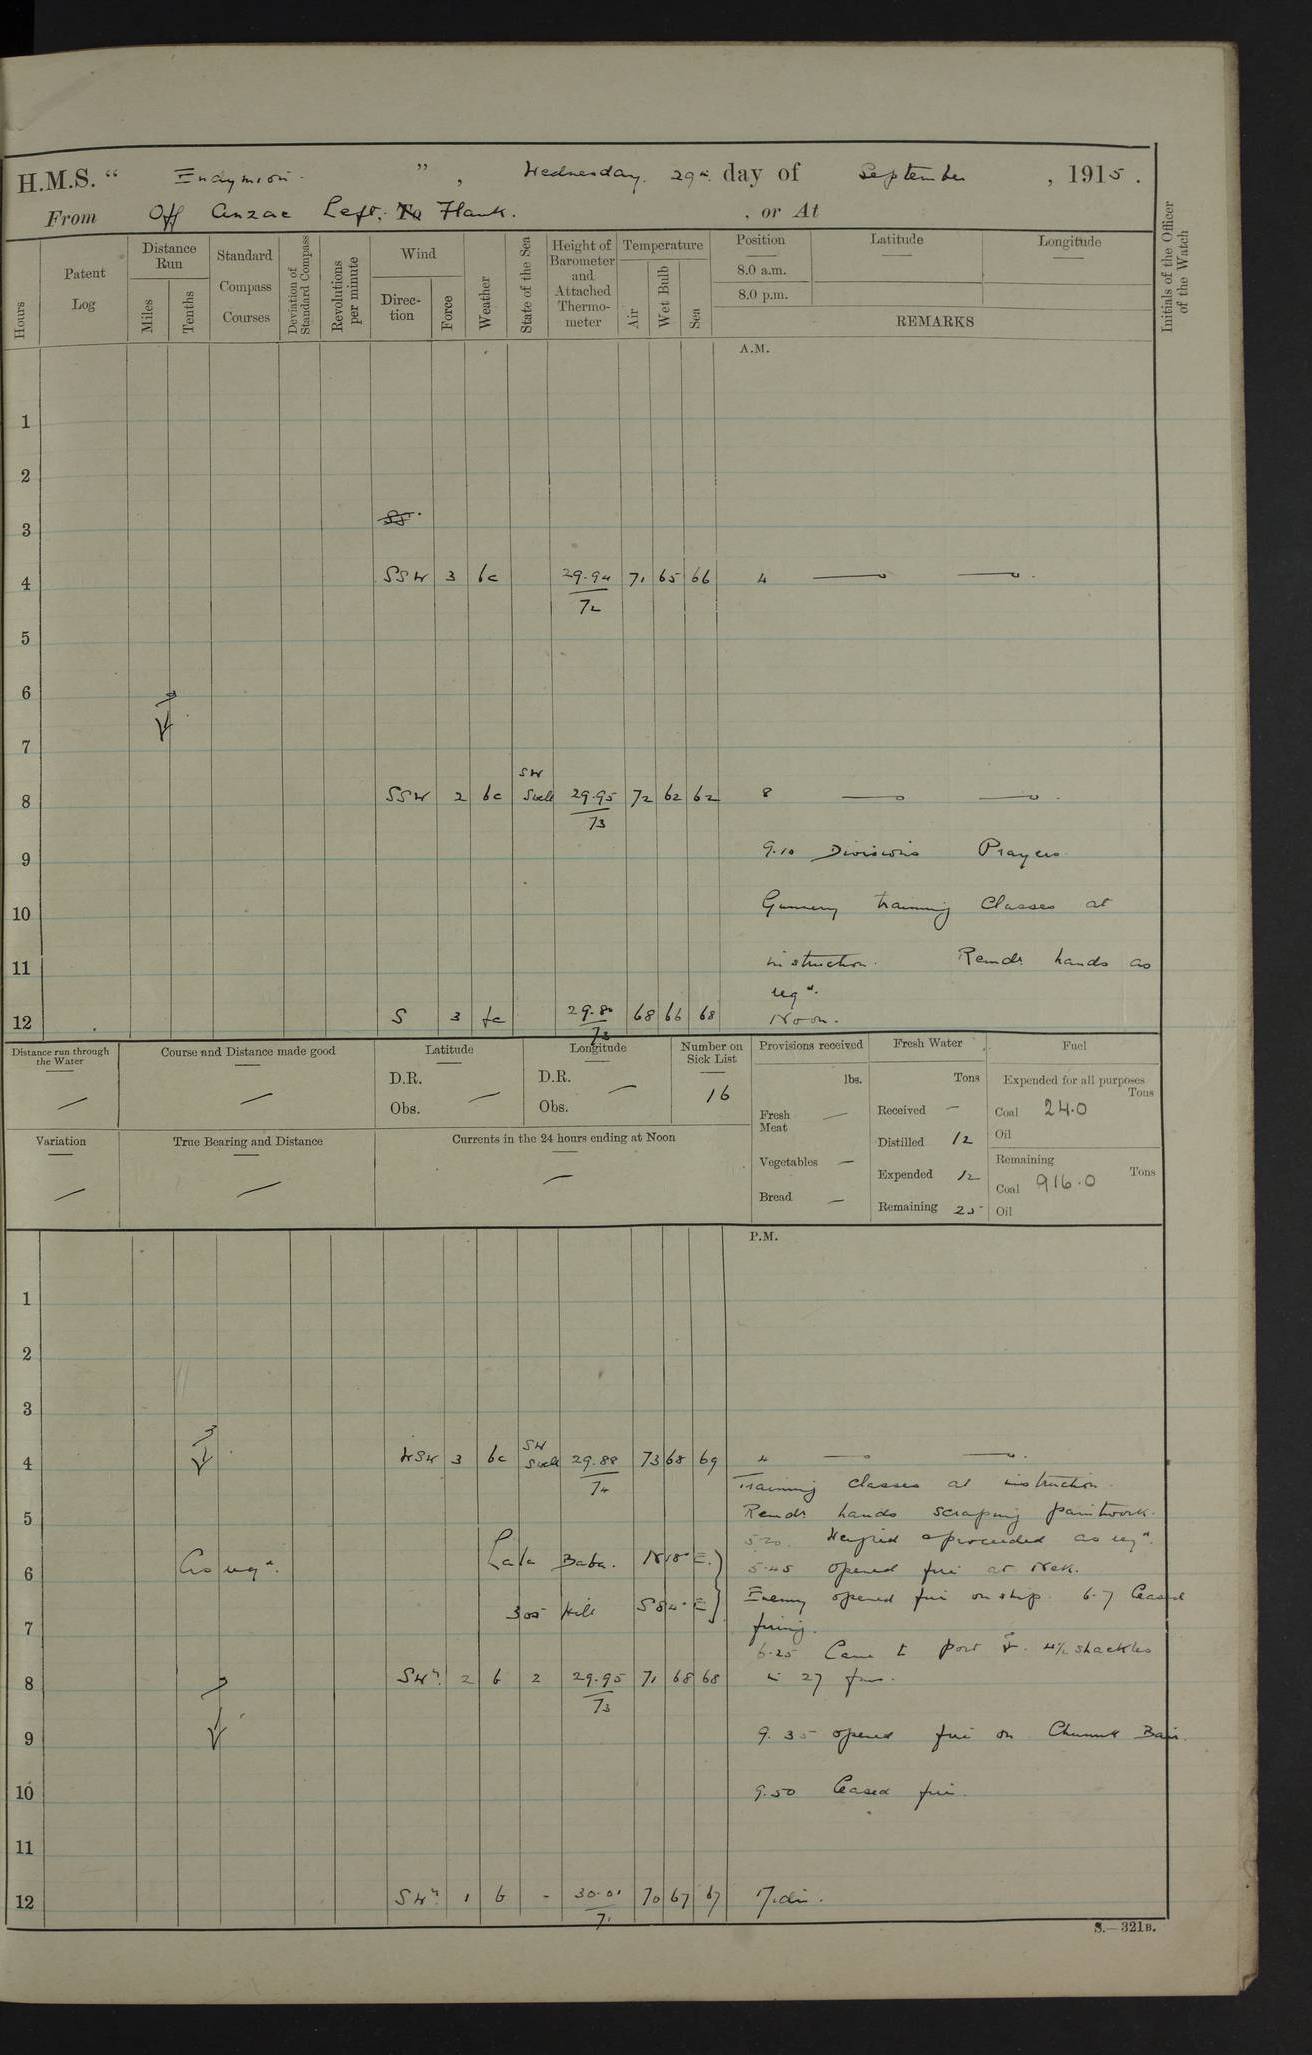 H.M.S. “ Endymion. ” , Wednesday. 29th. day of September , 1915 .
From Off Anzac Left. To Flank. , or At
Hours
Patent Log
Distance Run
Miles
Tenths
Standard Compass Courses
Deviation of Standard Compass
Revolutions per minute
Wind
Direction
Force
Weather
State of the Sea
Height of Barometer and Attached Thermometer
Temperature
Air
Wet Bulb
Sea
Position
8.0 a.m.
8.0 p.m.
Latitude
Longitude
REMARKS
Initials of the Officer of the Watch
A.M.
1
2
3 SS
4 SSW 3 bc 29.94 71 65 66 4
72
5
6
7
SW
8 SSW 2 bc Swell 29.95 72 62 62 8
73
9.10 Divisions Prayers
9
10 Gunnery training Classes at
11 instruction. Remdr hands as
reqd.
12 S 3 fc 29.80 68 66 68 Noon.
73
Distance run through the Water
—
Course and Distance made good
—
Latitude
D.R.
Obs. —
Longitude
D.R.
Obs. —
Number on Sick List
16
Variation
—
True Bearing and Distance
—
Currents in the 24 hours ending at Noon
—
Provisions received
lbs.
Fresh Meat —
Vegetables —
Bread —
Fresh Water
Tons
Received —
Distilled 12
Expended 12
Remaining 25
Fuel
Expended for all purposes
Tons
Coal 24.0
Oil
Remaining
Tons
Coal 916.0
Oil
P.M.
1
2
3
SW
4 WSW 3 bc Swell 29.88 73 68 69 4
74
Training classes at instruction.
5 Remdr hands scraping paintwork.
5.20. Weighed & proceeded as reqd.
6 As reqd. Lala Baba. N18°E.) 5.45 opened fire at Nek.
305 Hill S84°E} Enemy opened fire on ship. 6.7 Ceased
7 firing.
6.25 Came to port ⚓. 4½ shackles
8 SWly. 2 b 2 29.95 71 68 68 in 27 fms.
73
9 9.35 opened fire on Chunuk Bair.
10 9.50 Ceased fire.
11
12 SWly. 1 b - 30.01 70 67 67 Mid.
71
S.—321B.